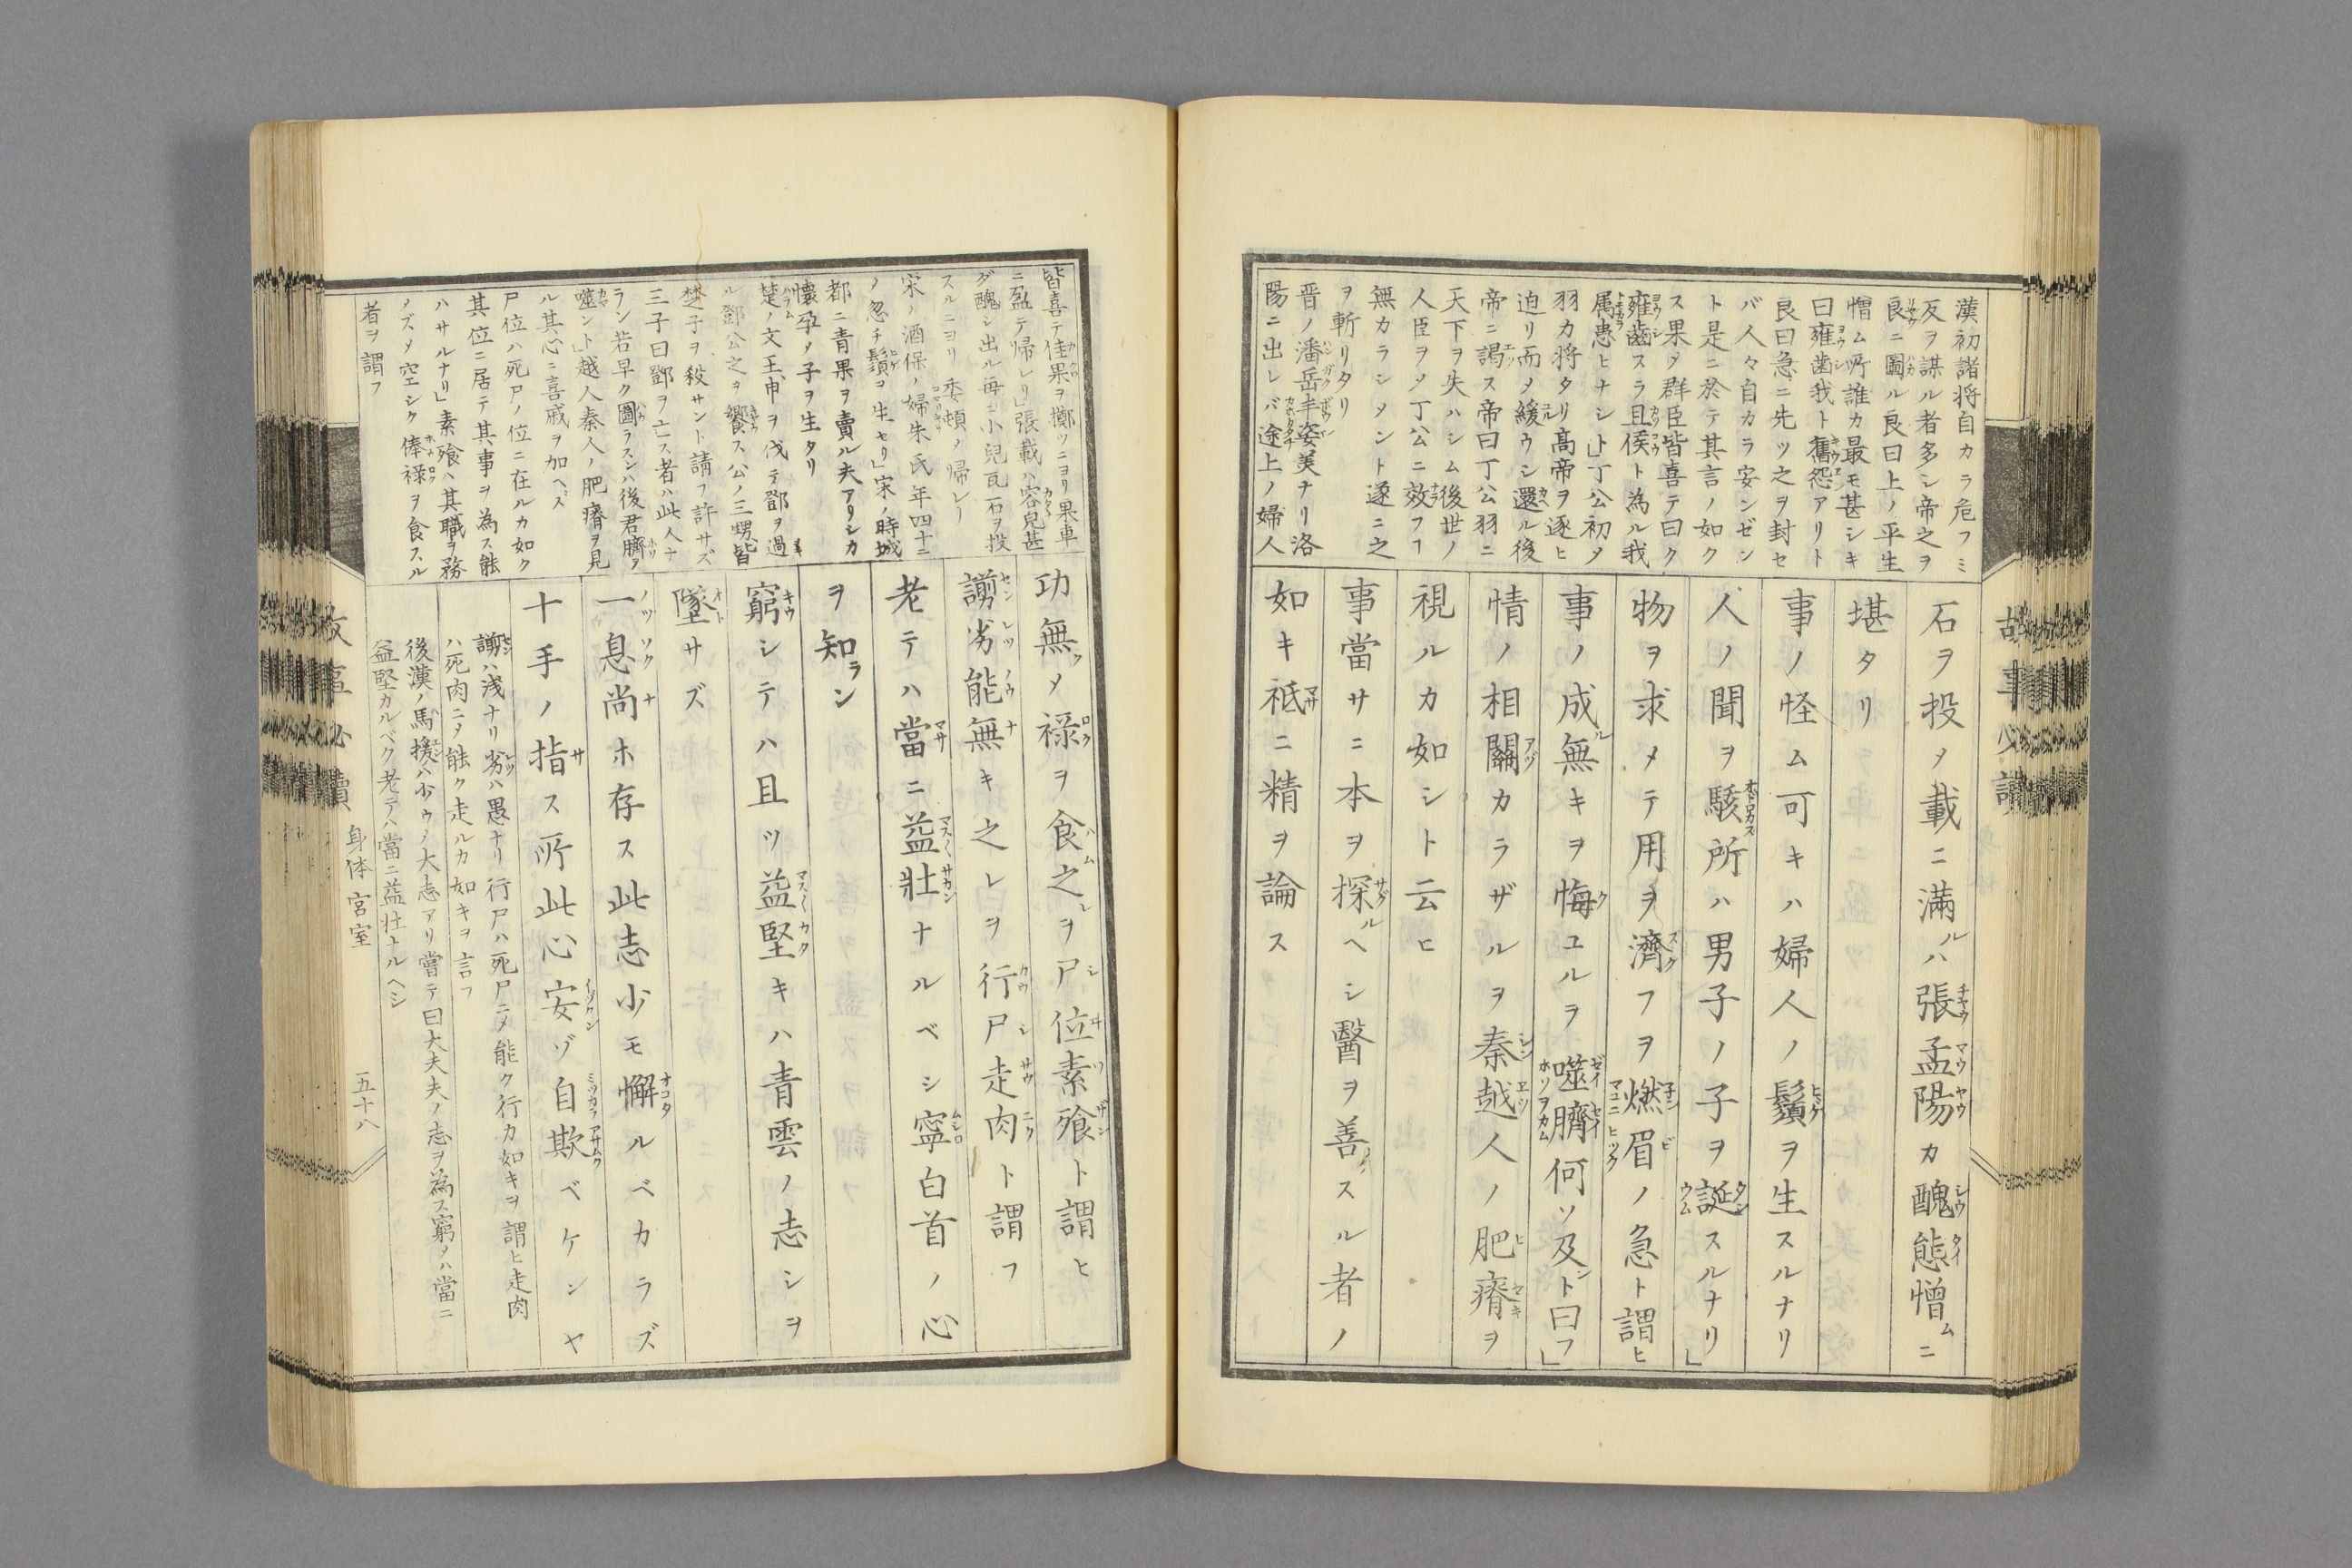 漢初諸将自カラ危フミ
反ヲ謀ル者多シ帝之ヲ
良ニ圖ル良曰上ノ平生
憎ム所誰カ最モ甚シキ
曰雍歯我ト舊怨アリト
良曰急ニ先ツ之ヲ封セ
バ人々自カラ安ンゼン
ト是ニ於テ其言ノ如ク
ス果タ群臣皆喜テ曰ク
雍歯スラ且侯ト為ル我
属患ヒナシト」丁公初メ
羽カ将タリ髙帝ヲ逐ヒ
迫リ而メ緩ウシ還ル後
帝ニ謁ス帝曰丁公羽ニ
天下ヲ失ハシム後世ノ
人臣ヲメ丁公ニ效フフ
無カラシメント遂ニ之
ヲ斬リタリ
晋ノ潘岳丰姿美ナリ洛
陽ニ出レバ途上ノ婦人
石ヲ投メ載ニ滿ルハ張孟陽カ醜態憎ムニ
堪タリ
事ノ怪ム可キハ婦人ノ鬚ヲ生スルナリ
人ノ聞ヲ駭所ハ男子ノ子ヲ誕スルナリ」
物ヲ求メテ用ヲ濟フヲ燃眉ノ急ト謂ヒ
事ノ成無キヲ悔ユルヲ噬臍何ソ及ント曰フ」
情ノ相關カラザルヲ秦越人ノ肥瘠ヲ
視ルカ如シト云ヒ
事當サニ本ヲ探ルヘシ醫ヲ善スル者ノ
如キ祗ニ精ヲ論ス
皆喜テ佳果ヲ擲ツニヨリ果車
ニ盈テ帰レリ」張載ハ容皃甚
ダ醜シ出ル毎ニ小兒瓦石ヲ投
スルニヨリ委頓メ帰レリ
宋ノ酒保ノ婦朱氏年四十ニ
メ忽チ鬚ヲ生セリ」宋ノ時城
都ニ青果ヲ賣ル夫アリシカ
懷孕メ子ヲ生タリ
楚ノ文王申ヲ伐テ鄧ヲ過
ル鄧公之ヲ饗ス公ノ三甥皆
楚子ヲ殺サント請フ許サズ
三子曰鄧ヲ亡ス者ハ此人ナ
ラン若早ク圖ラスンハ後君臍ヲ
噬ント」越人秦人ノ肥瘠ヲ見
ル其心ニ喜戚ヲ加ヘズ
尸位ハ死尸ノ位ニ在ルカ如ク
其位ニ居テ其事ヲ為ス能
ハサルナリ」素飱ハ其職ヲ務
メズメ空シク俸禄ヲ食スル
者ヲ謂フ
功無クメ禄ヲ食之レヲ尸位素飱ト謂ヒ
謭劣能無キ之レヲ行尸走肉ト謂フ
老テハ當ニ益壯ナルベシ寧白首ノ心
ヲ知ラン
窮シテハ且ツ益堅キハ青雲ノ志シヲ
墜サズ
一息尚ホ存ス此志少モ懈ルベカラズ
十手ノ指ス所此心安ゾ自欺ベケンヤ
謭ハ浅ナリ劣ハ愚ナリ行尸ハ死尸ニメ能ク行カ如キヲ謂ヒ走肉
ハ死肉ニメ能ク走ルカ如キヲ言フ
後漢ノ馬援ハ少ウメ大志アリ嘗テ曰大夫夫ノ志ヲ為ス窮メハ當ニ
益堅カルベク老テハ當ニ益壮ナルヘシ
身体 宮室
五十八